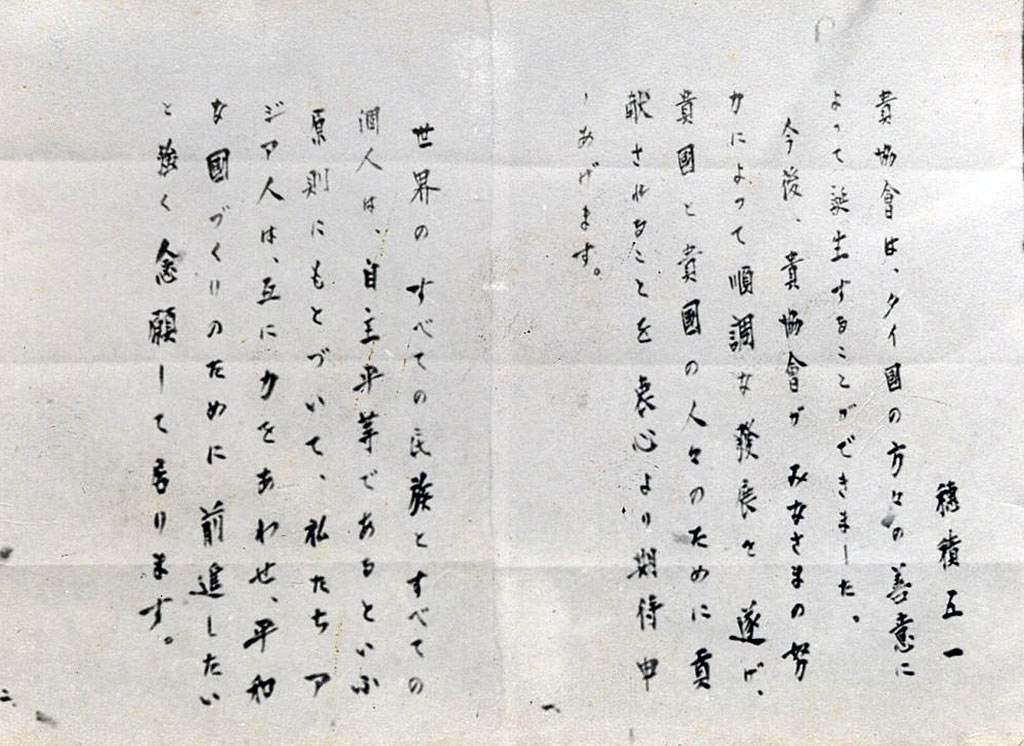 穂積五一
貴協會は、タイ國の方々の善意に
よって誕生することができました。
今後、貴協會が みなさまの努
力によって順調な發展を遂げ、
貴國と貴國の人々のために貢
献されることを衷心より期待申
しあげます。
世界の すべての民族とすべての
個人は、自主平等であるといふ
原則にもとづいて、私たちア
ジア人は、互に力をあわせ、平和
な國づくりのために 前進したい
と強く念願して居ります。
一
二